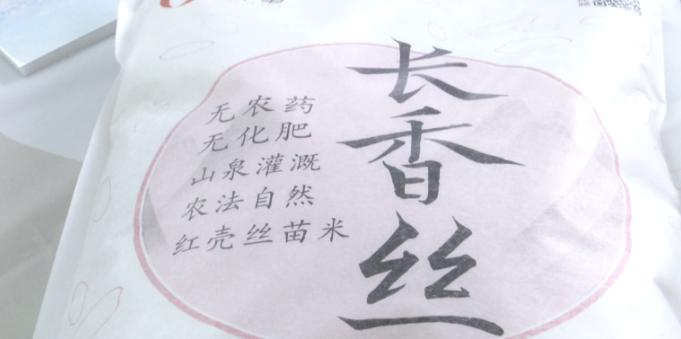 长香丝
无农药
无化肥
山泉灌溉
农法自然
红壳丝苗米